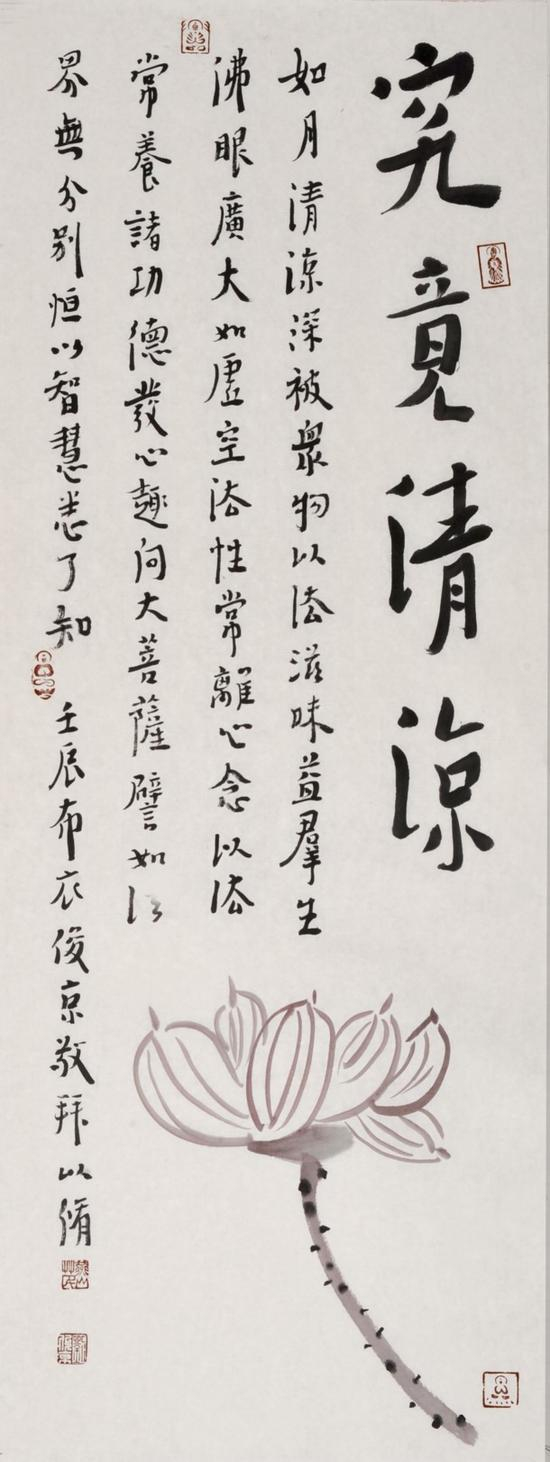 究竟清涼
如月清涼深被眾物以法滋味益羣生
佛眼廣大如虛空法性常離心念以法
常養諸功德發心趣向大菩薩譬如法
界無分別恒以智慧悉了知 壬辰布衣俊京敬拜以脩